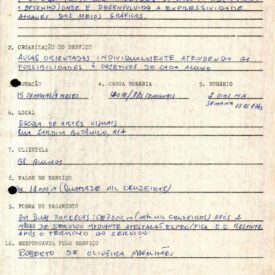 : DESEMPENHADE E DESENVOLVIDO A EXPRESSIVIDADE
ATRAVÉS DOS MEIOS GRÁFICOS.
2. ORGANIZAÇÃO DO SERVIÇO
AULAS ORIENTADAS INDIVIDUALMENTE ATENDENDO AS
POSSIBILIDADES E OBJETIVOS DE CADA ALUNO
DURAÇÃO 4. CARGA HORÁRIA 5. HORÁRIO
15 SEMANAS/4 MESES 2 DIAS NA
SEMANA
6. LOCAL
ESCOLA DE ARTES VISUAIS
RUA JARDIM BOTÂNICO, 414
7. CLIENTELA
ALUNOS
8. VALOR DO SERVIÇO
14.000,00 (QUATORZE MIL CRUZEIROS)
9. FORMA DE PAGAMENTO
EM DUAS PARCELAS: CR$7.000,00 (SETE MIL CRUZEIROS) APÓS 2
MESES DE SERVIÇO MEDIANTE ATESTAÇÃO ESPECÍFICA E O RESTANTE
APÓS O TÉRMINO DO SERVIÇO
10. RESPONSÁVEL PELO SERVIÇO
ROBERTO DE OLIVEIRA MAGALHÃES